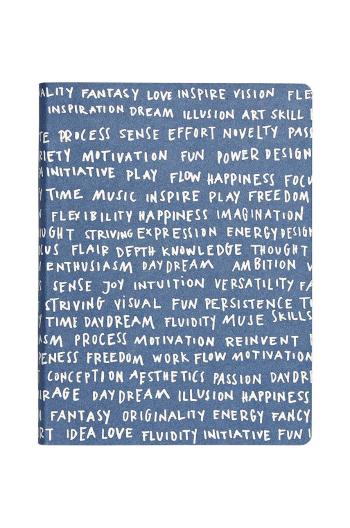 ALITY FANTASY LOVE INSPIRE VISION FLE
INSPIRATION DREAM ILLUSION ART SKILL
TE PROCESS SENSE EFFORT NOVELTY PASS
RIETY MOTIVATION FUN POWER DESIGN
INITIATIVE PLAY FLOW HAPPINESS FOCU
TIME MUSIC INSPIRE PLAY FREEDOM
FLEXIBILITY HAPPINESS IMAGINATION
UGHT STRIVING EXPRESSION ENERGY DESIGN
CUS FLAIR DEPTH KNOWLEDGE THOUGHT
ENTHUSIASM DAYDREAM AMBITION V
SENSE JOY INTUITION VERSATILITY FA
STRIVING VISUAL FUN PERSISTENCE T
TIME DAYDREAM FLUIDITY MUSE SKILLS
ASM PROCESS MOTIVATION REINVENT
PENESS FREEDOM WORK FLOW MOTIVATION
CONCEPTION AESTHETICS PASSION DAYDR
RAGE DAYDREAM ILLUSION HAPPINESS
FANTASY ORIGINALITY ENERGY FANCY
RT IDEA LOVE FLUIDITY INITIATIVE FUN I